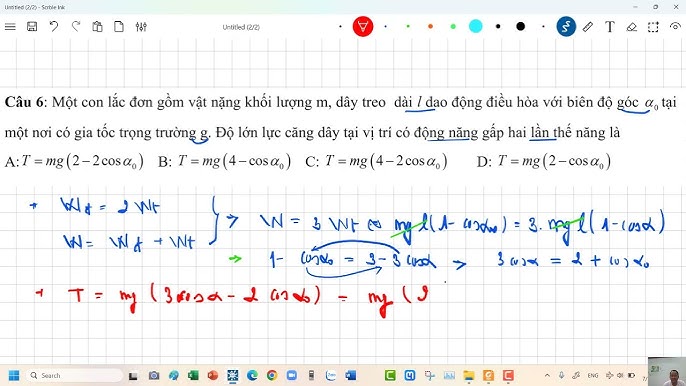 Untitled (2/2) - Scrble Ink
Untitled (2/2)
Câu 6: Một con lắc đơn gồm vật nặng khối lượng m, dây treo dài l dao động điều hòa với biên độ góc α₀ tại
một nơi có gia tốc trọng trường g. Độ lớn lực căng dây tại vị trí có động năng gấp hai lần thế năng là
A: T = mg(2−2cosα₀) B: T = mg(4−cosα₀) C: T = mg(4−2cosα₀) D: T = mg(2−cosα₀)
+ Wđ = 2 Wt
W = Wđ + Wt
> W = 3 Wt ⇔ mgl(1−cosα₀) = 3.mgl(1−cosα)
→ 1− cosα₀ = 3−3cosα > 3cosα = 2 + cosα₀
+ T = mg(3cosα − 2cosα₀) = mg(2
Search
ENG